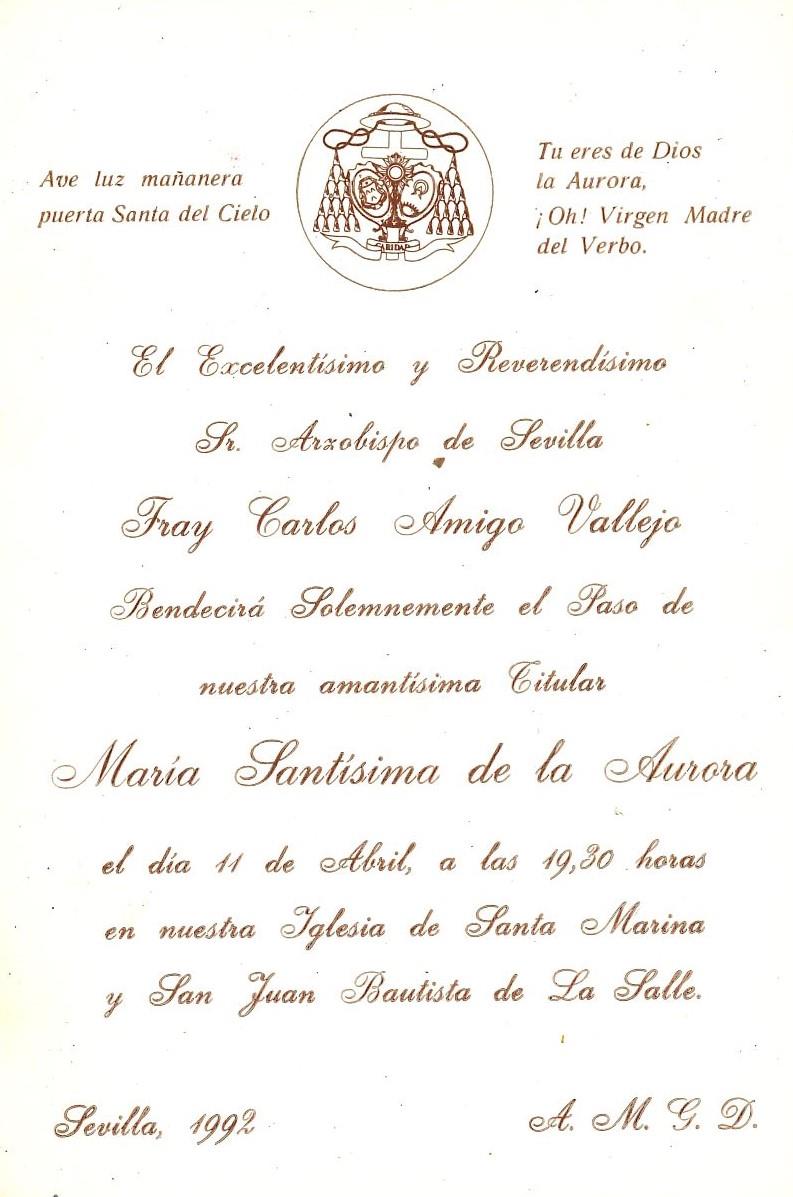 Ave luz mañanera
puerta Santa del Cielo
CARIDAD
Tu eres de Dios
la Aurora,
¡Oh! Virgen Madre
del Verbo.
El Excelentísimo y Reverendísimo
Sr. Arzobispo de Sevilla
Fray Carlos Amigo Vallejo
Bendecirá Solemnemente el Paso de
nuestra amantísima Titular
María Santísima de la Aurora
el día 11 de Abril, a las 19,30 horas
en nuestra Iglesia de Santa Marina
y San Juan Bautista de La Salle.
Sevilla, 1992
A. M. G. D.